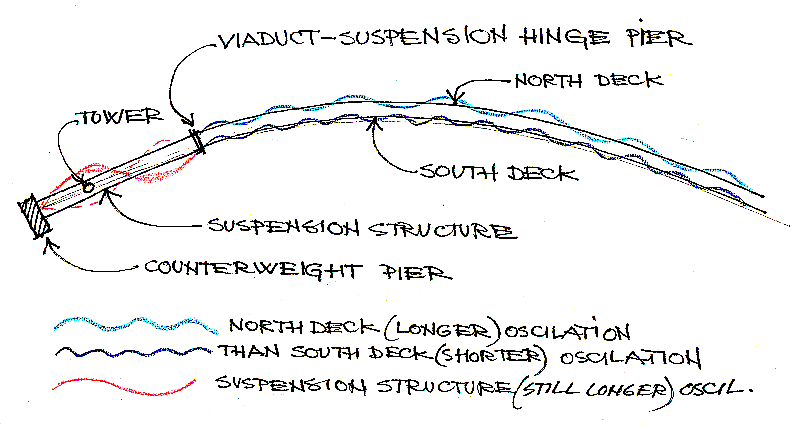 VIADUCT-SUSPENSION HINGE PIER
NORTH DECK
TOWER
SOUTH DECK
SUSPENSION STRUCTURE
COUNTERWEIGHT PIER
NORTH DECK (LONGER) OSCILATION
THAN SOUTH DECK (SHORTER) OSCILATION
SUSPENSION STRUCTURE (STILL LONGER) OSCIL.